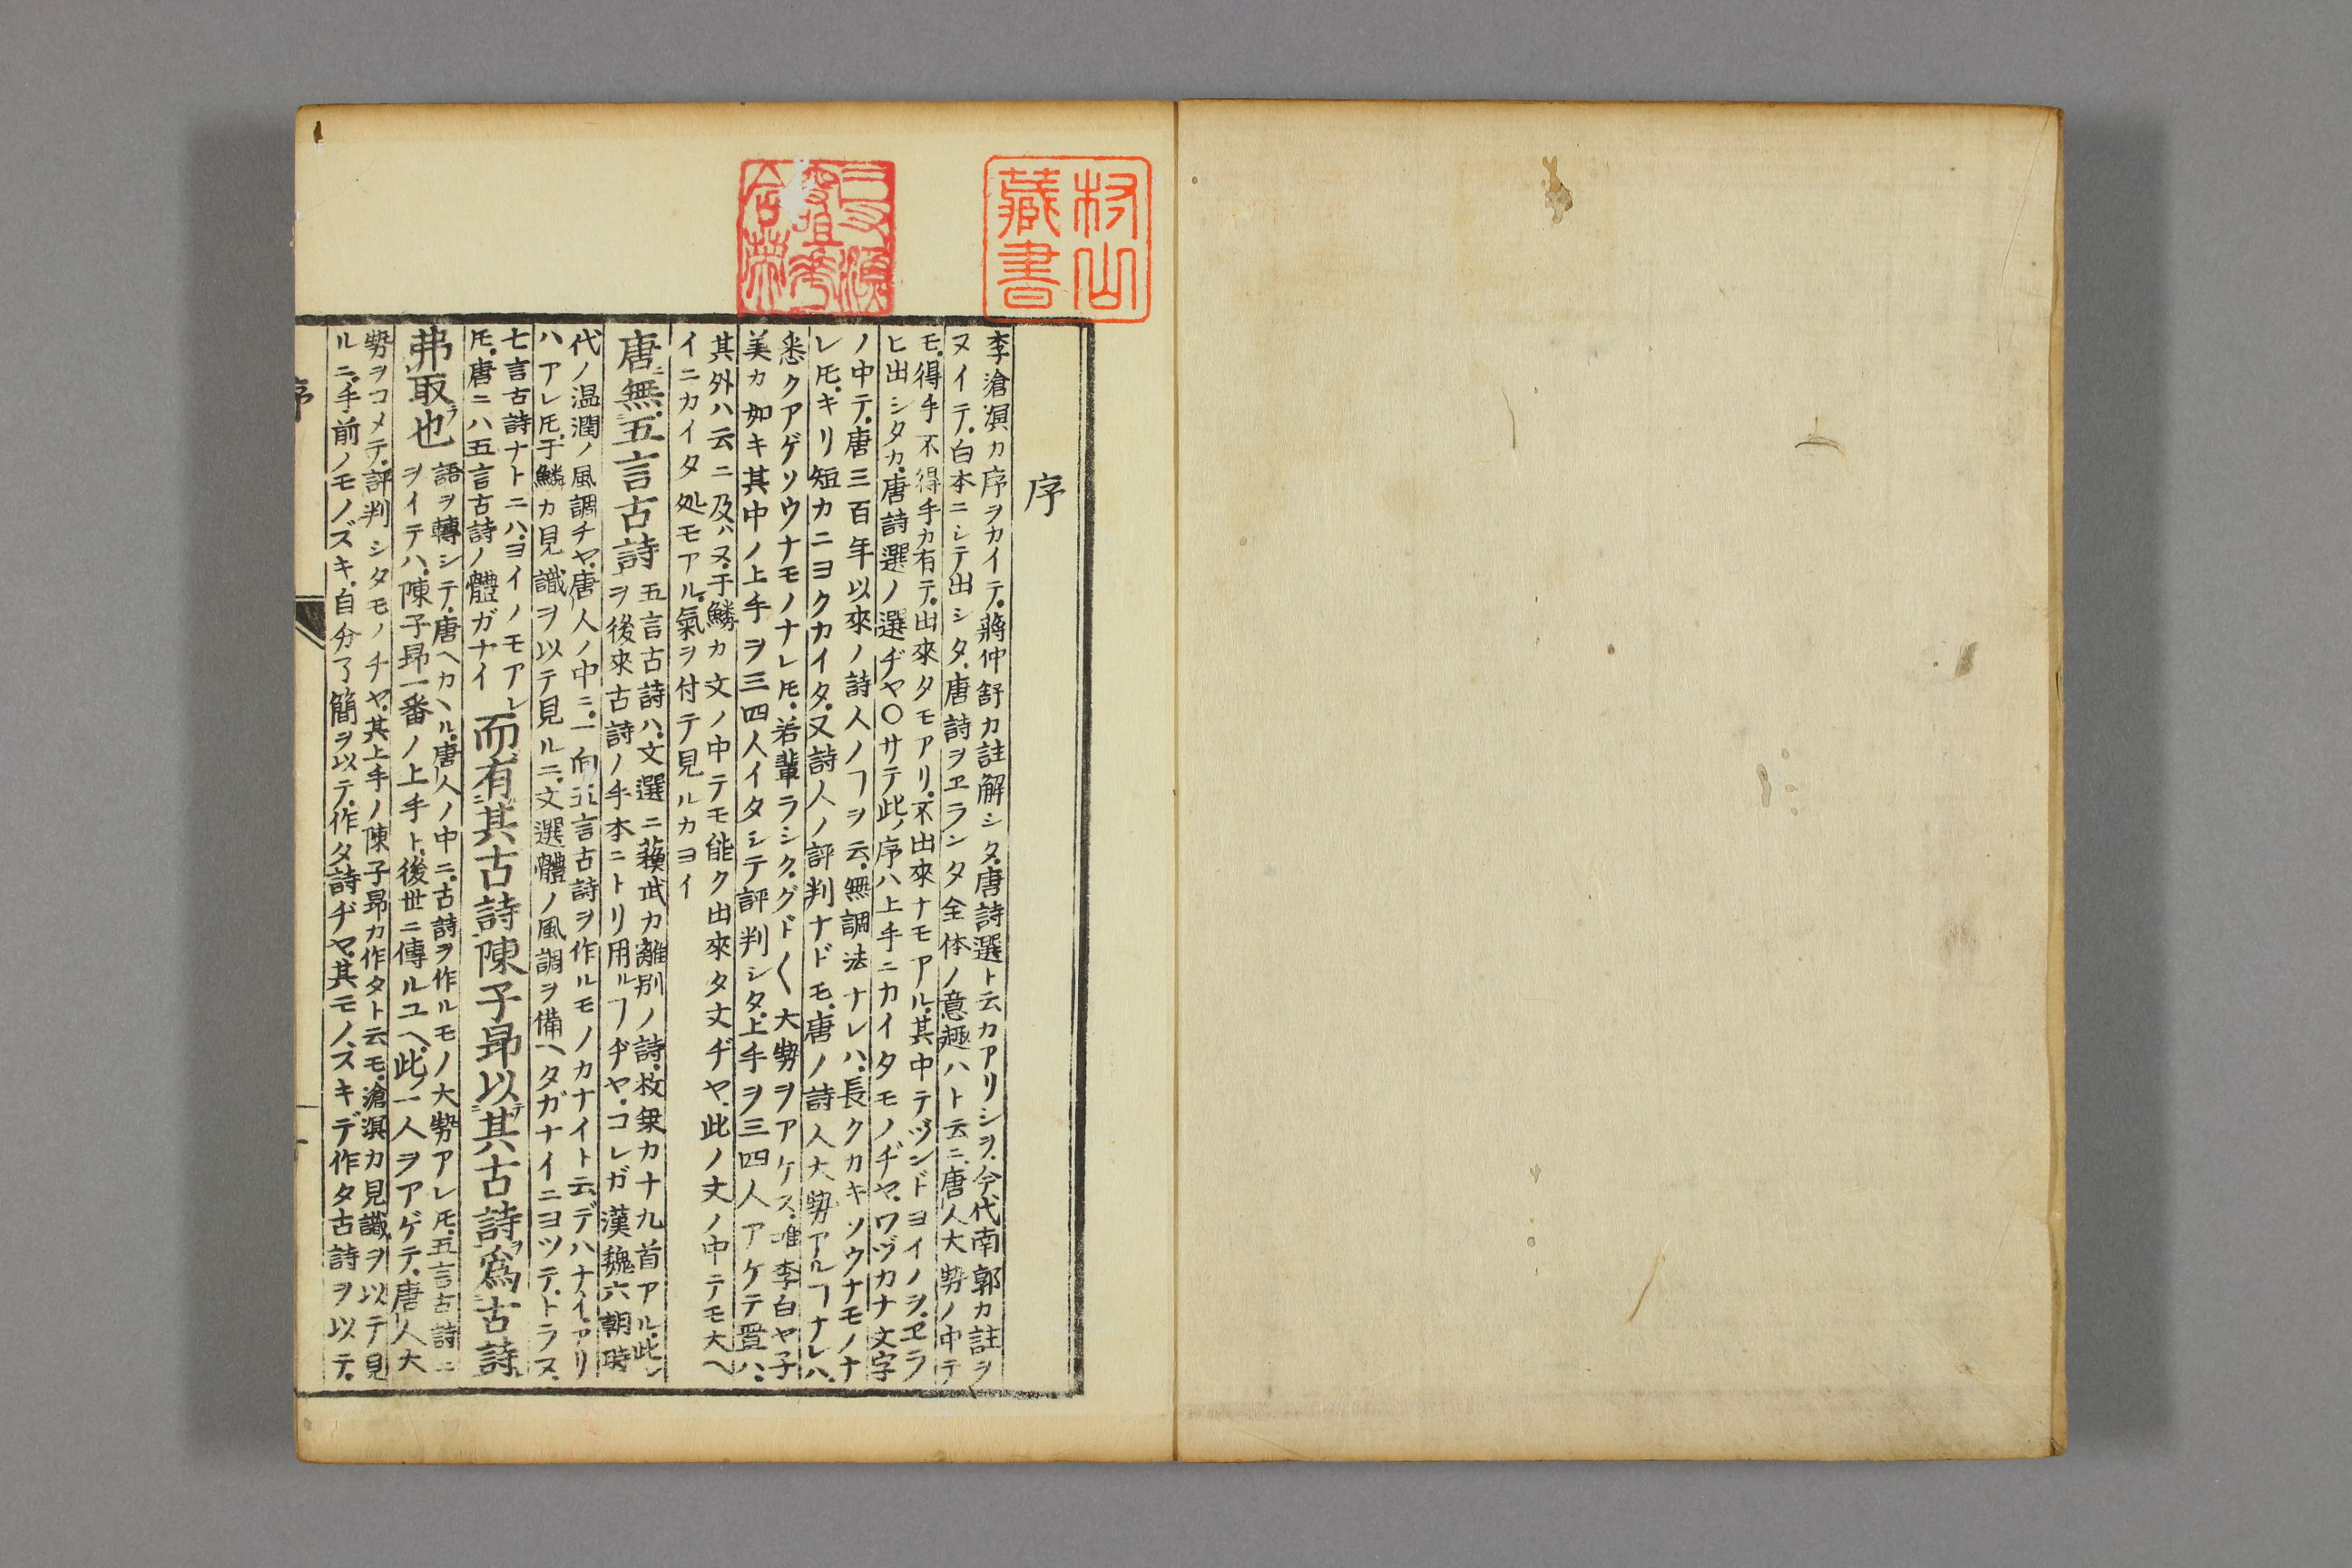 村山
藏書
序
李滄溟カ序ヲカイテ蔣仲舒カ註解シタ唐詩選ト云カアリシヲ今代南郭カ註ヲ
ヌイテ白本ニシテ出シタ唐詩ヲヱランタ全体ノ意趣ハト云ニ唐人大勢ノ中テ
モ得手不得手カ有テ出來タモアリ不出來ナモアル其中テヅンドヨイノヲヱラ
ヒ出シタカ唐詩選ノ選ヂヤ〇サテ此ノ序ハ上手ニカイタモノヂヤワヅカナ文字
ノ中テ唐三百年以來ノ詩人ノヿヲ云無調法ナレハ長クカキソウナモノナ
レ𪜈キリ短カニヨクカイタ又詩人ノ評判ナドモ唐ノ詩人大勢アルヿナレハ
悉クアゲソウナモノナレ𪜈若輩ラシクグド〱大勢ヲアケス唯李白ヤ子
美カ如キ其中ノ上手ヲ三四人イタシテ評判シタ上手ヲ三四人アケテ置ハ
其外ハ云ニ及ハヌ于鱗カ文ノ中テモ能ク出來タ文ヂヤ此ノ文ノ中テモ大ヘ
イニカイタ処モアル氣ヲ付テ見ルカヨイ
唐ニ無五言古詩
五言古詩ハ文選ニ蘓武カ離別ノ詩枚乗カ十九首アル此レ
ヲ後來古詩ノ手本ニトリ用ルヿヂヤコレガ漢魏六朝時
代ノ温潤ノ風調チヤ唐人ノ中ニ一向五言古詩ヲ作ルモノカナイト云デハナイアリ
ハアレ𪜈于鱗カ見識ヲ以テ見ルニ文選體ノ風調ヲ備ヘタガナイニヨツテトラヌ
七言古詩ナトニハヨイノモアレ
𪜈唐ニハ五言古詩ノ體ガナイ
而有其古詩陳子昻以其古詩爲古詩
弗取也
語ヲ轉シテ唐ヘカヘル唐人ノ中ニ古詩ヲ作ルモノ大勢アレ𪜈五言古詩ニ
ヲイテハ陳子昻一番ノ上手ト後世ニ傳ルユヘ此ノ一人ヲアゲテ唐人大
勢ヲコメテ評判シタモノチヤ其上手ノ陳子昻カ作タト云モ滄溟カ見識ヲ以テ見
ルニ手前ノモノズキ自分了簡ヲ以テ作タ詩ヂヤ其モノスキデ作タ古詩ヲ以テ
序